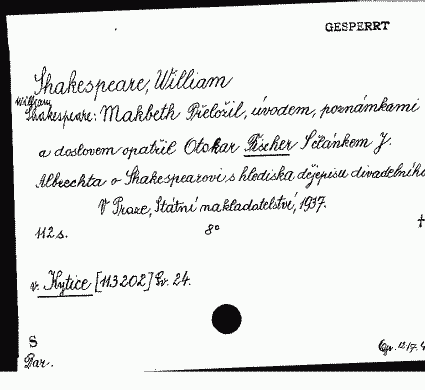 GESPERRT
Shakespeare, William
William
Shakespeare: Makbeth Přeložil, úvodem, poznámkami
a doslovem opatřil Otokar Fischer S článkem J.
Albrechta o Shakespearovi s hlediska dějepisu divadelního
V Praze, Státní nakladatelství, 1937.
112 s. 8°
v. Kytice [113202] Sv. 24.
S
Dar.